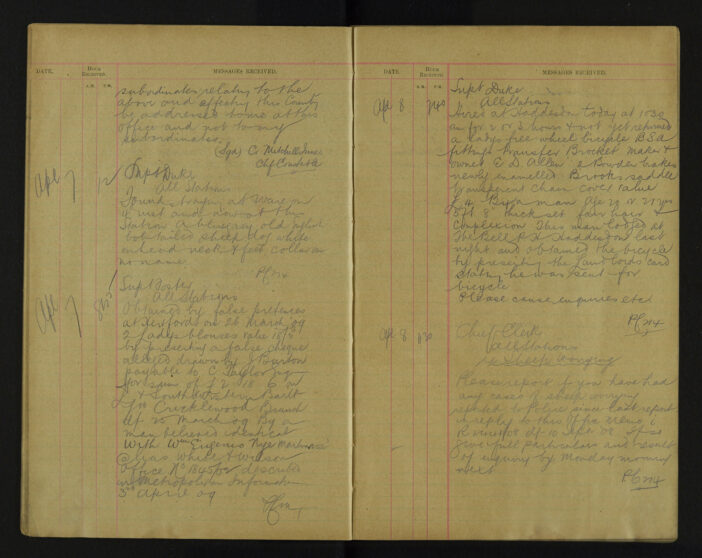 DATE. HOUR RECEIVED. MESSAGES RECEIVED.
A.M. P.M.
subordinates relating to the
above and affecting this County
be addressed to me at this
office and not to my
subordinates.
(Sgd) C. Mitchell Innes
Chf Constble
Apl 7
Supt Duke
All Stations
Found, trayn, at
& now at the
Station a blue grey old
bobtailed sheep dog white
head neck & feet collar on
no name
PC 274
Apl 7
Supt Foster
All Stations
Obtained by false pretences
at on 26 March 09
2 Ladys blouses value 18/5
by presenting a false cheque
alleged drawn by J Burton
payable to C Taylor
for sum of £2 18 6 on
L & South Western Bank
Ltd Cricklewood Branch
of 25 March 09 By a
man believed identical
with Wm Eugenso Nye
alias White & Wilson
Office No describd
in Metropolitan Information
3rd April 09
DATE HOUR RECEIVED. MESSAGES RECEIVED.
A.M. P.M.
Apl 8 740
Supt Duke
All Stations
Hired at Waddesdon today at 1030
am for 2 or 3 hours & not yet returned
a ladys free wheel bicycle BSA
fittings transfer Brocket maker &
owner E. D. Allen 2 Bowden brakes
newly enamelled Brooks saddle
transparent chain cover value
£4. By a man age 20 or 21 yrs
5ft 8 thick set fair hair &
complexion This man lodged at
The Bell P.H Waddesdon last
night and obtained the bicycle
by presenting the landlords card
stating he was sent for
bicycle
Please cause enquiries etc
PC 274
Apl 8 830
Chief Clerk
All Stations
re Sheep Worrying
Please report if you have had
any cases of sheep worrying
reported to Police since last report
in reply to this office memo
of
Give full particulars and result
of enquiry by Monday morning
next
PC 274